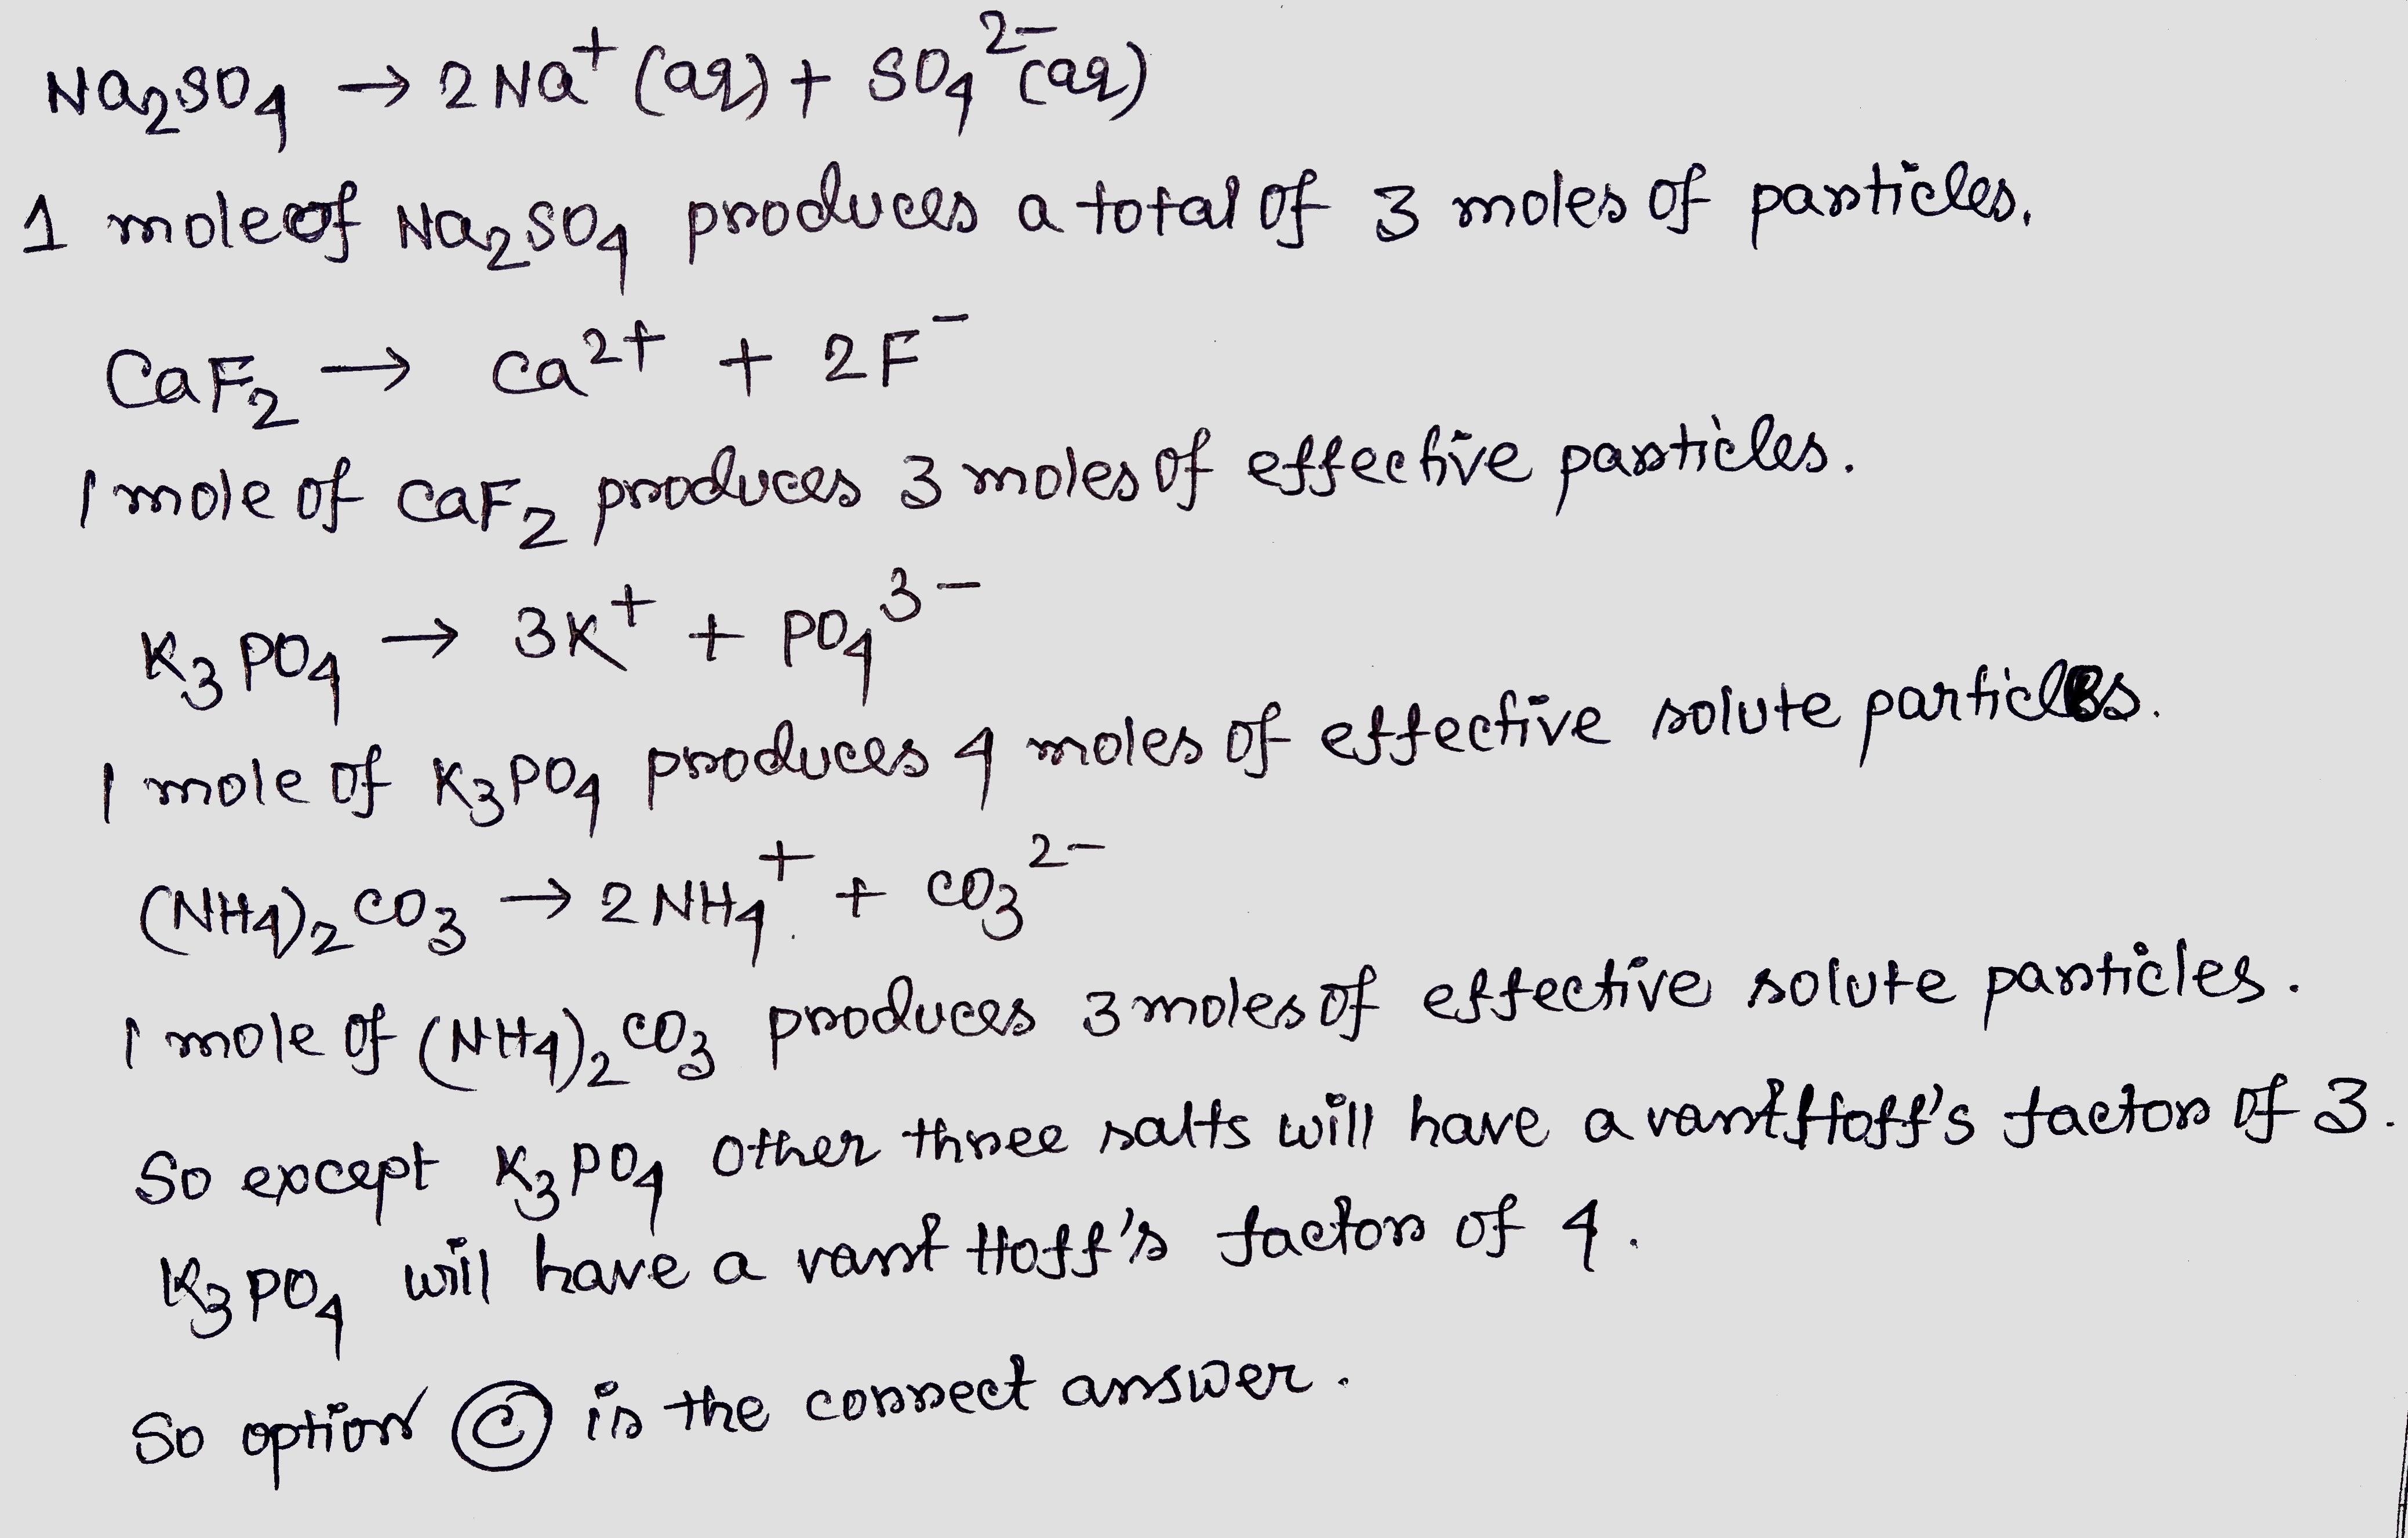 Na₂SO₄ → 2Na⁺ (aq) + SO₄²⁻ (aq)
1 mole of Na₂SO₄ produces a total of 3 moles of particles.
CaF₂ → Ca²⁺ + 2F⁻
1 mole of CaF₂ produces 3 moles of effective particles.
K₃PO₄ → 3K⁺ + PO₄³⁻
1 mole of K₃PO₄ produces 4 moles of effective solute particles.
(NH₄)₂CO₃ → 2NH₄⁺ + CO₃²⁻
1 mole of (NH₄)₂CO₃ produces 3 moles of effective solute particles.
So except K₃PO₄ other three salts will have a vant Hoff's factor of 3.
K₃PO₄ will have a vant Hoff's factor of 4.
So option Ⓒ is the correct answer.